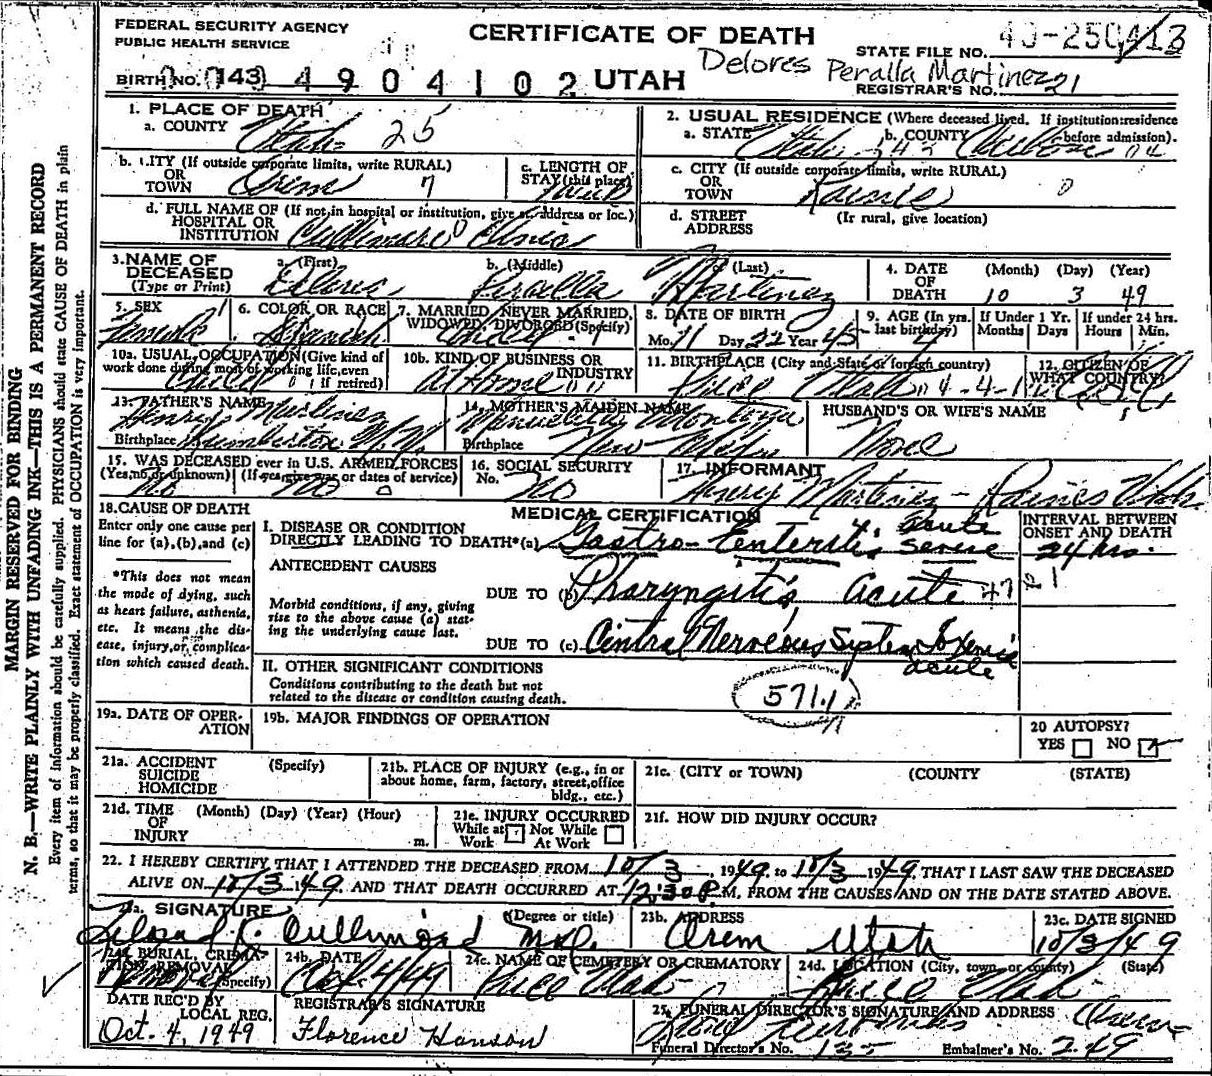 FEDERAL SECURITY AGENCY
PUBLIC HEALTH SERVICE
CERTIFICATE OF DEATH
STATE FILE NO.
BIRTH NO. 143 4904102 UTAH
Delores Peralla Martinez
REGISTRAR'S NO. 21
1. PLACE OF DEATH
a. COUNTY Utah 25
2. USUAL RESIDENCE (Where deceased lived. If institution:residence before admission).
a. STATE Utah b. COUNTY Carbon 04
b. CITY (If outside corporate limits, write RURAL)
OR TOWN Orem 7
c. LENGTH OF STAY (this place)
c. CITY (If outside corporate limits, write RURAL)
OR TOWN Rains 0
d. FULL NAME OF (If not in hospital or institution, give st. address or loc.)
HOSPITAL OR INSTITUTION Cullimore Clinic
d. STREET ADDRESS (If rural, give location)
3. NAME OF DECEASED (Type or Print)
a. (First) Delores b. (Middle) Peralla c. (Last) Martinez
4. DATE OF DEATH (Month) (Day) (Year) 10 3 49
5. SEX Female
6. COLOR OR RACE Spanish
7. MARRIED, NEVER MARRIED, WIDOWED, DIVORCED (Specify)
8. DATE OF BIRTH
Mo. 11 Day 22 Year 45
9. AGE (In yrs. last birthday)
If Under 1 Yr. Months Days
If under 24 hrs. Hours Min.
10a. USUAL OCCUPATION (Give kind of work done during most of working life, even if retired) Child
10b. KIND OF BUSINESS OR INDUSTRY At Home
11. BIRTHPLACE (City and State or foreign country) Price Utah
12. CITIZEN OF WHAT COUNTRY?
13. FATHER'S NAME Henry Martinez
Birthplace Lumberton N.M.
14. MOTHER'S MAIDEN NAME Montoya
Birthplace New Mex
HUSBAND'S OR WIFE'S NAME
None
15. WAS DECEASED ever in U.S. ARMED FORCES
(Yes, no, or unknown) No (If yes give war or dates of service) No
16. SOCIAL SECURITY No. No
17. INFORMANT
Henry Martinez - Rains Utah
18. CAUSE OF DEATH
Enter only one cause per line for (a), (b), and (c)
*This does not mean the mode of dying, such as heart failure, asthenia, etc. It means the disease, injury, or complication which caused death.
MEDICAL CERTIFICATION
I. DISEASE OR CONDITION DIRECTLY LEADING TO DEATH* (a) Gastro-Enteritis acute severe
ANTECEDENT CAUSES
DUE TO (b) Pharyngitis, acute
Morbid conditions, if any, giving rise to the above cause (a) stating the underlying cause last.
DUE TO (c) Central Nerveous System Toxemia acute
INTERVAL BETWEEN ONSET AND DEATH
24 hrs.
II. OTHER SIGNIFICANT CONDITIONS
Conditions contributing to the death but not related to the disease or condition causing death.
571.1
19a. DATE OF OPERATION
19b. MAJOR FINDINGS OF OPERATION
20 AUTOPSY?
YES NO
21a. ACCIDENT SUICIDE HOMICIDE (Specify)
21b. PLACE OF INJURY (e.g., in or about home, farm, factory, street, office bldg., etc.)
21c. (CITY or TOWN) (COUNTY) (STATE)
21d. TIME OF INJURY (Month) (Day) (Year) (Hour) m.
21e. INJURY OCCURRED
While at Work Not While At Work
21f. HOW DID INJURY OCCUR?
22. I HEREBY CERTIFY THAT I ATTENDED THE DECEASED FROM 10/3, 1949 to 10/3 1949, THAT I LAST SAW THE DECEASED
ALIVE ON 10/3 1949, AND THAT DEATH OCCURRED AT 12:30 P.M. FROM THE CAUSES AND ON THE DATE STATED ABOVE.
23a. SIGNATURE (Degree or title)
K. Cullimore M.D.
23b. ADDRESS
Orem Utah
23c. DATE SIGNED
10/3/49
24a. BURIAL, CREMATION, REMOVAL (Specify) Removal
24b. DATE
Oct. 4/49
24c. NAME OF CEMETERY OR CREMATORY
Price Utah
24d. LOCATION (City, town, or county) (State)
Price Utah
DATE REC'D BY LOCAL REG.
Oct. 4, 1949
REGISTRAR'S SIGNATURE
Florence Hanson
25. FUNERAL DIRECTOR'S SIGNATURE AND ADDRESS
Orem
Funeral Director's No. Embalmer's No. 249
MARGIN RESERVED FOR BINDING
N. B.—WRITE PLAINLY WITH UNFADING INK—THIS IS A PERMANENT RECORD
Every item of information should be carefully supplied. PHYSICIANS should state CAUSE OF DEATH in plain
terms, so that it may be properly classified. Exact statement of OCCUPATION is very important.